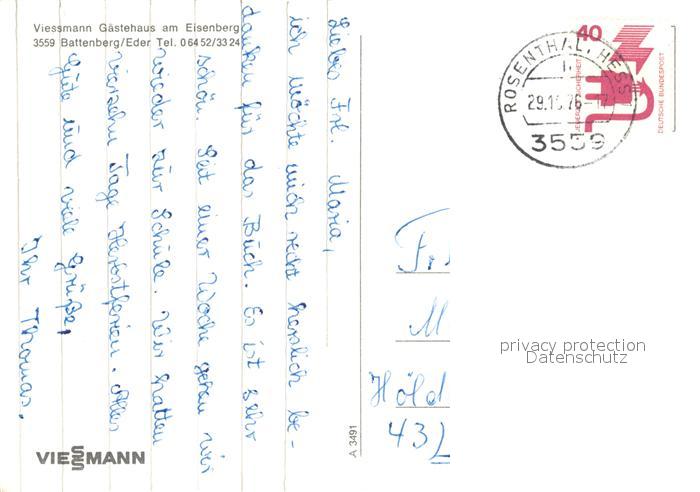 Viessmann Gästehaus am Eisenberg
3559 Battenberg/Eder Tel. 0 64 52/33 24
Liebes Frl. Maria,
ich möchte mich recht herzlich be-
danken für das Buch. Es ist sehr
schön. Seit einer Woche gehen wir
wieder zur Schule. Wir hatten
vierzehn Tage Herbstferien. Alles
Gute und viele Grüße,
Ihr Thomas.
VIESSMANN
A 3491
40
JEDERZEIT SICHERHEIT
DEUTSCHE BUNDESPOST
ROSENTHAL, HESS
3559
Fr
M
Höld
432
privacy protection
Datenschutz